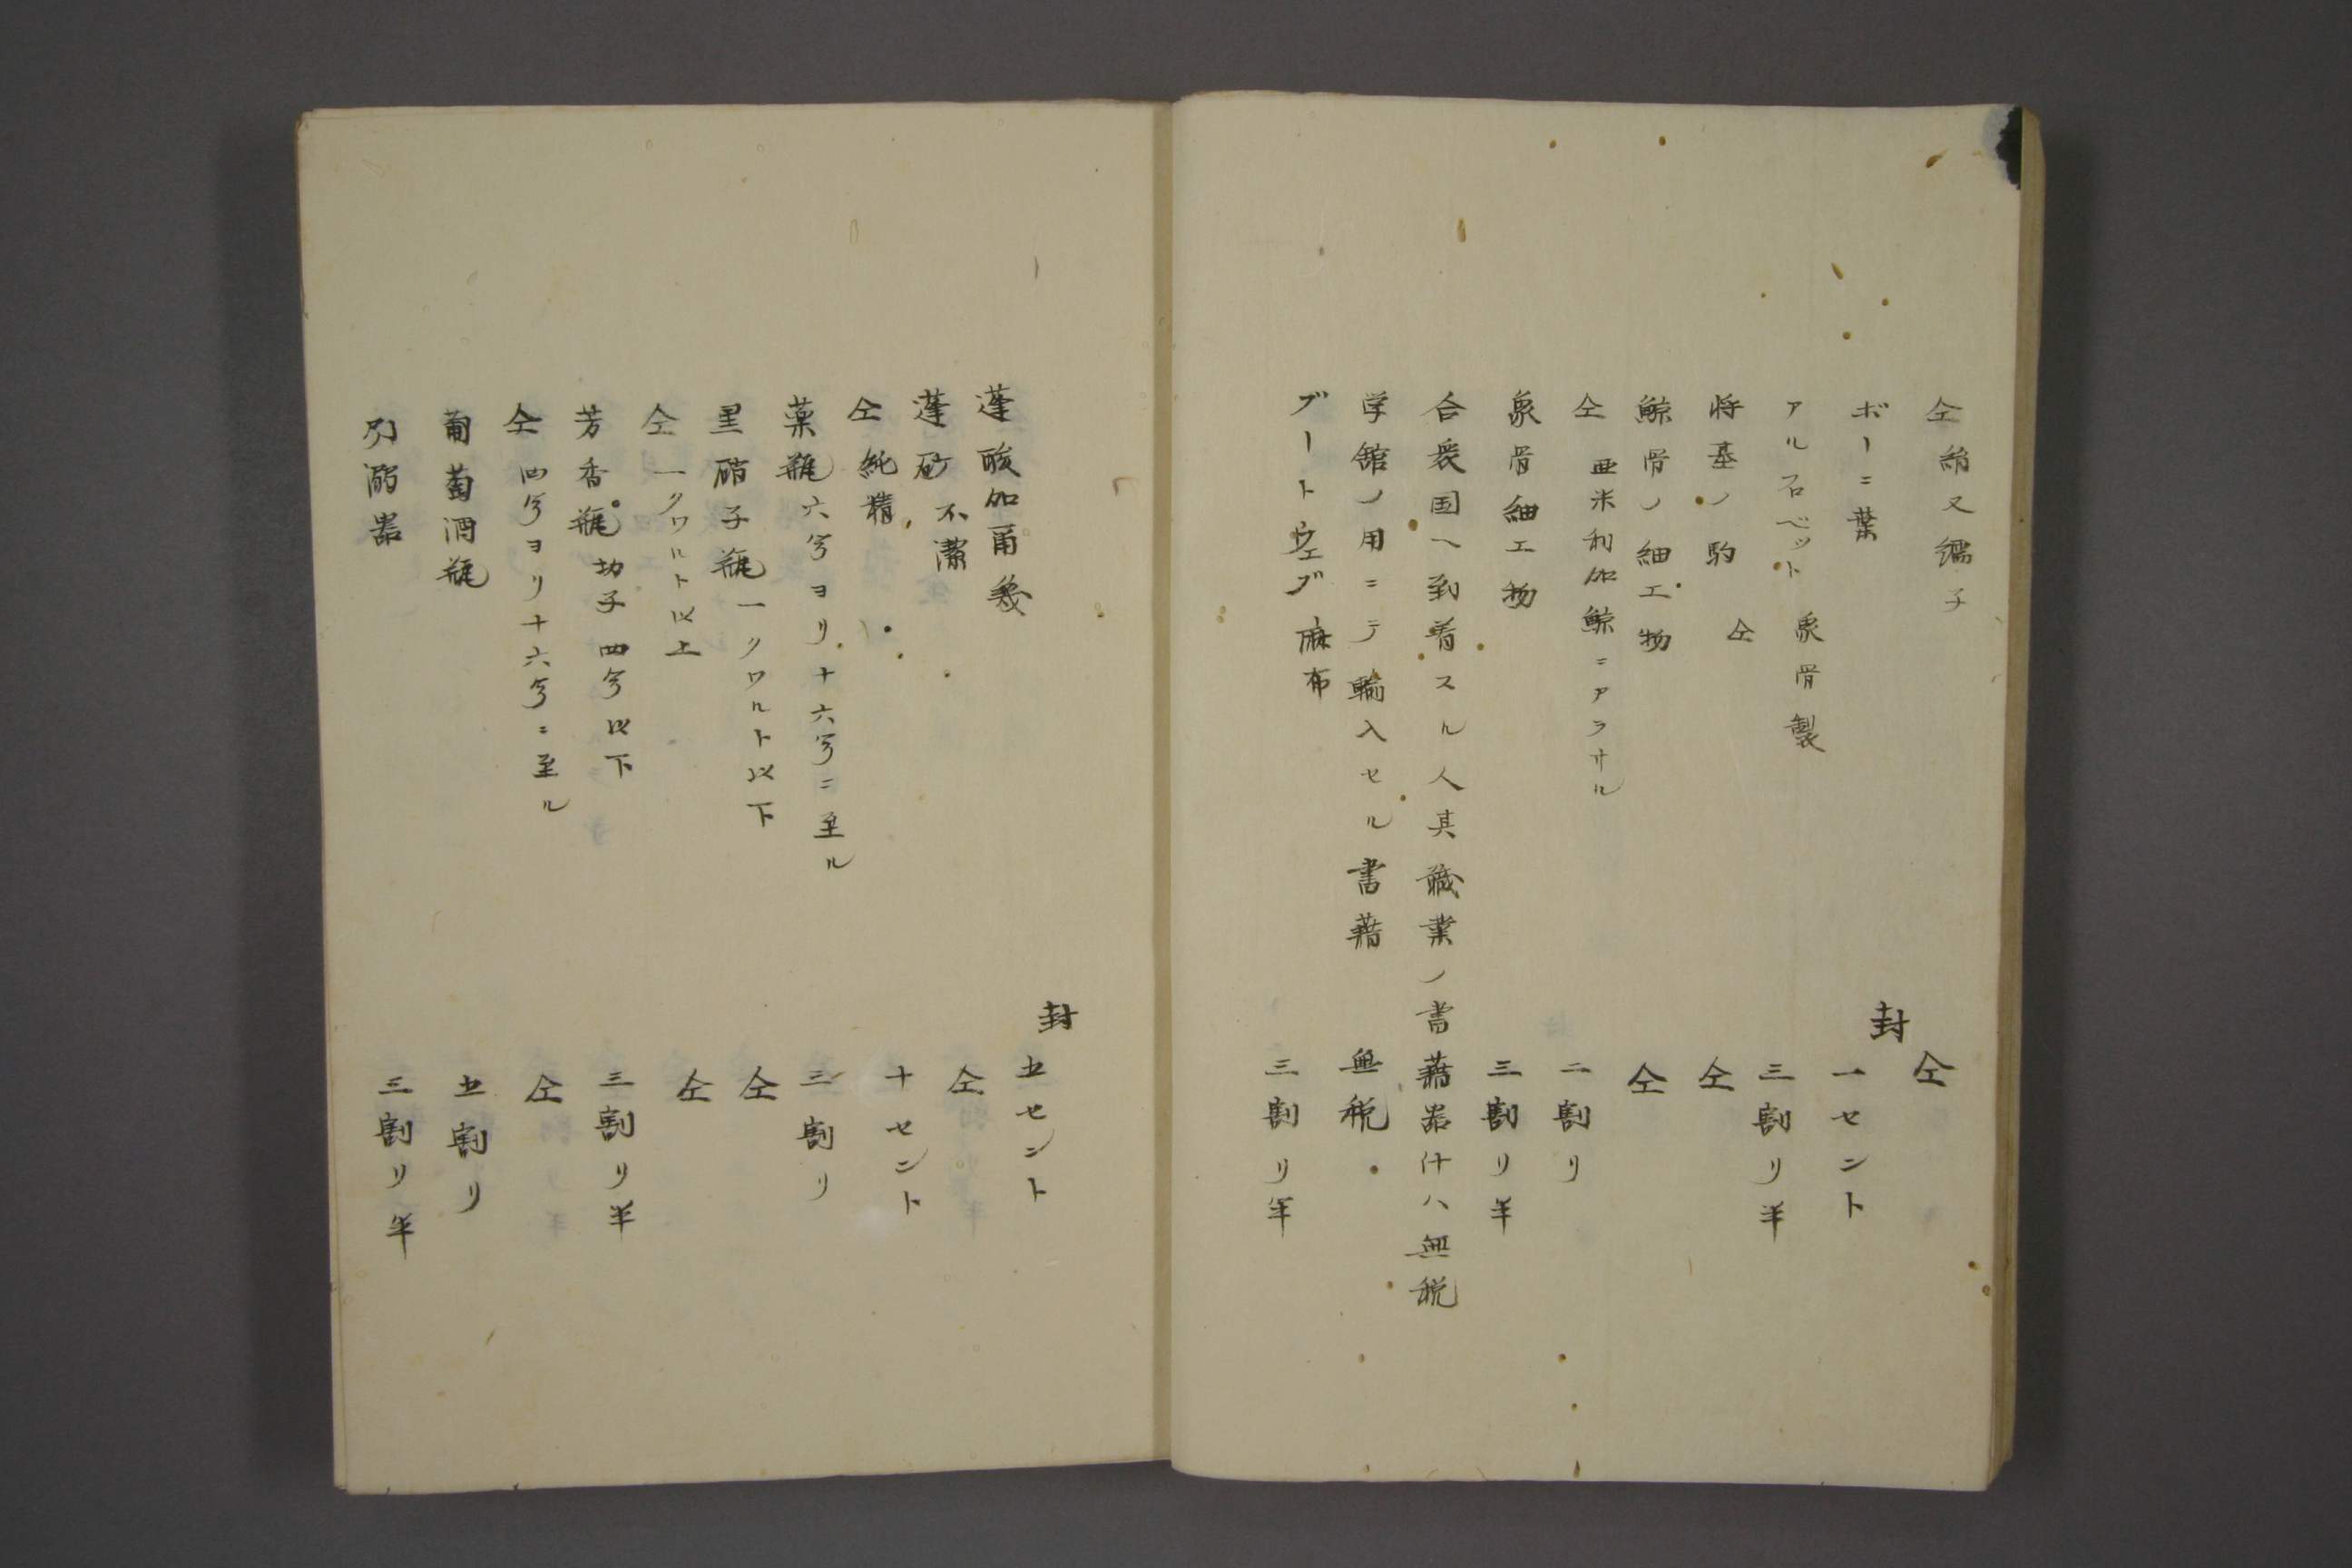 仝絹又繻子　仝
ボーニ葉　封一セント
アル石ベット　象骨製　三割リ半
将基ノ駒　仝　仝
鯨骨ノ細工物　仝
仝　亜米利加鯨ニアラサル　二割リ
象骨細工物　三割リ半
合衆国ヘ到着スル人其職業ノ書藉器什ハ無税
学館ノ用ニテ輸入セル書藉　無税
ブートウエブ麻布　三割リ半
蓬酸加爾幾　封五セント
蓬砂　不潔　仝
仝純精　十セント
菓瓶六穹ヨリ十六穹ニ至ル　三割リ
里硝子瓶一クワルト以下　仝
仝一クワルト以上　仝
芳香瓶　切子　四穹以下　三割リ半
仝　四穹ヨリ十六穹ニ至ル　仝
葡萄酒瓶　五割リ
溺器　三割リ半